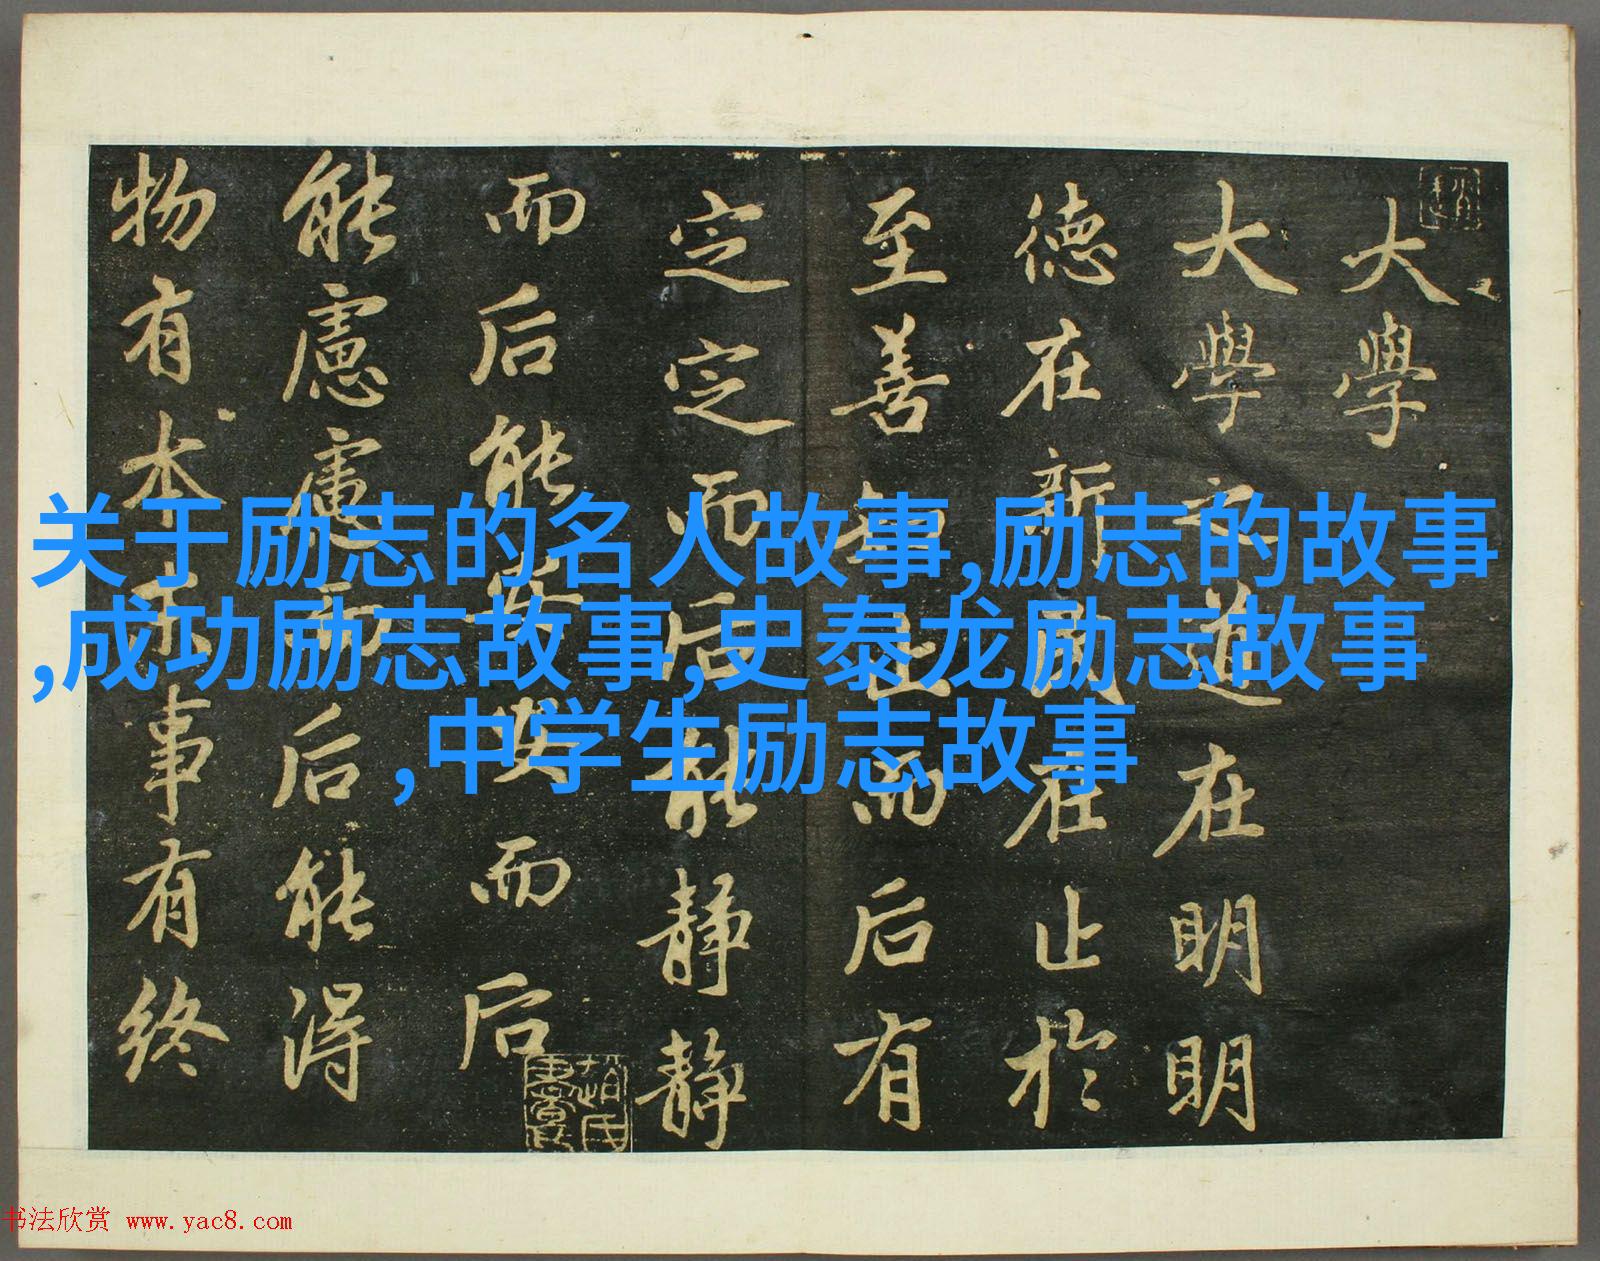 大學
大學之道在明明
德在新民在止於
至善知止而后有
定定而后能靜靜
而后能安安而后
能慮慮而后能得
物有本末事有終
关于励志的名人故事,励志的故事
,成功励志故事,史泰龙励志故事
,中学生励志故事
书法欣赏 www.yac8.com